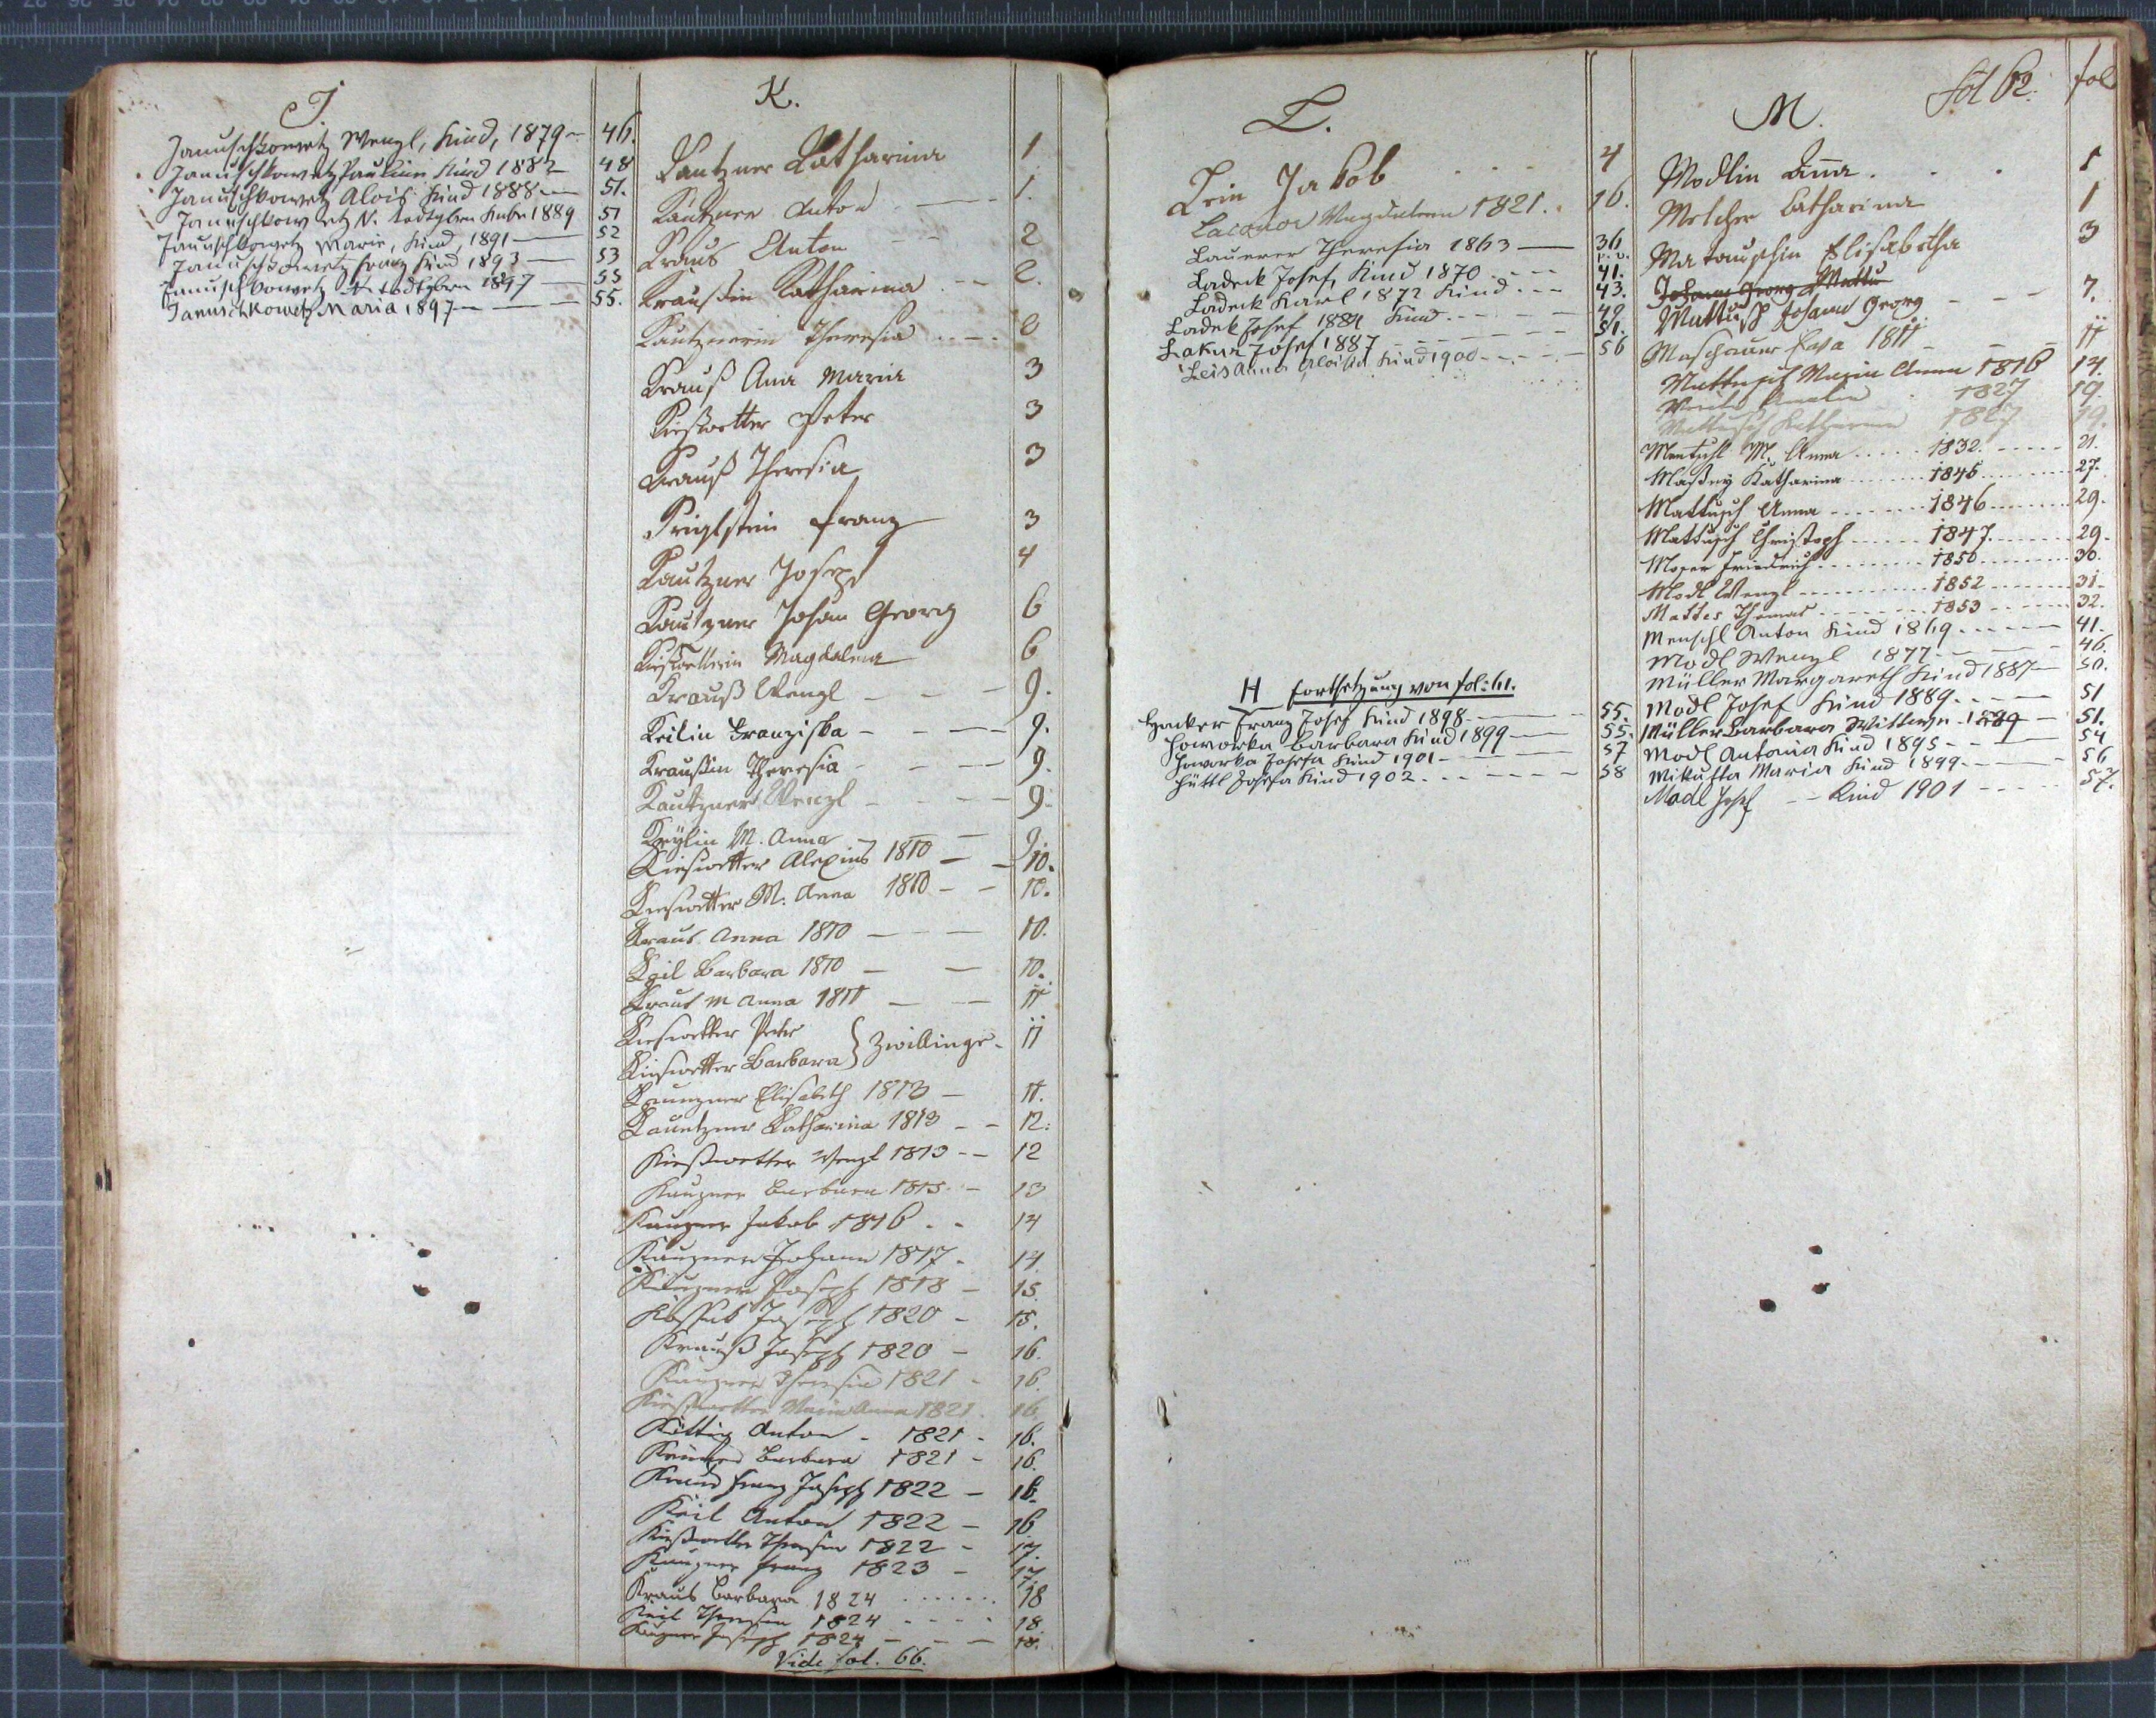 J.
Januschkowetz Wenzl, Kind, 1879 46.
Januschkowetz Pauline Kind 1882 48
Januschkowetz Alois Kind 1888 51.
Januschkowetz N. todtgebn Knabe 1889 51
Januschkowetz Marie, Kind, 1891 52
Januschkowetz Franz Kind 1893 53
Januschkowetz N. todtgebn 1897 55
Januschkowetz Maria 1897 55.
K.
Kautzner Katharina 1
Kautzner Anton 1.
Kraus Anton 2
Kraußin Katharina 2.
Kautznerin Theresia 2
Krauß Ana Maria 3
Kießwetter Peter 3
Krauß Theresia 3
Franz 3
Kautzner Joseph 4
Kautzner Johan Georg 6
Kießwetterin Magdalena 6
Krauß Wenzl 9.
Keilin Franziska 9.
Kraußin Theresia 9.
Kautzner Wenzl 9.
Keylin M. Anna 9.
Kieswetter Alexius 1810 10.
Kieswetter M. Anna 1810 10.
Kraus Anna 1810 10.
Keil Barbara 1810 10.
Kraus M Anna 1811 11
Kieswetter Peter
Kieswetter Barbara } Zwillinge 11
Elisabeth 1813 11.
Kauetzner Katharina 1813 12.
Kießwetter Wenzl 1813 12
Kauzner Barbara 1815 13
Kauzner Jakob 1816 14
Kauzner Johann 1817 14.
Kauzner Joseph 1818 15.
Joseph 1820 15.
Krauß Joseph 1820 16.
Kauzner Theresia 1821 16.
Kießwetter Maria Anna 1821 16.
Anton 1821 16.
Barbara 1821 16.
Franz Joseph 1822 16.
Keil Anton 1822 16
Kießwetter Theresia 1822 17.
Kauzner Franz 1823 17.
Kraus Barbara 1824 18
Keil Theresia 1824 18
Kauzner Joseph 1824 18.
Vide fol. 66.
L.
Lein Jakob 4
Magdalena 1821. 16.
Lauerer Theresia 1863 36
Ladeck Josef, Kind 1870 41.
Ladeck Karl 1872 Kind 43.
Ladek Josef 1884 Kind 49.
Lakur Josef 1887 51.
Leis Anna Aloisia Kind 1900 56
H Fortsetzung von fol: 61.
Hacker Franz Josef Kind 1898 55.
Howorka Barbara Kind 1899 55.
Howorka Josefa Kind 1901 57
Hüttl Josefa Kind 1902 58
fol 62. fol
M.
Modlin Anna 1
Melcher Catharina 1
Matauschin Elisabetha 3
Johann Georg Mattu
Mattusch Johann Georg 7.
Maschauer Eva 1811 11
Mattusch Maria Anna 1816 14.
1827 19.
Mattusch Katharina 1827 19.
Mentschl M. Anna 1832. 21.
Maßney Katharina 1845 27.
Mattusch Anna 1846 29.
Mattusch Christoph 1847. 29.
Moser Friedrich 1850 30.
Modl Wenzl 1852 31.
Mattes Thomas 1853 32.
Menschl Anton Kind 1869 41.
Modl Wenzl 1877 46.
Müller Margareth Kind 1887 50.
Modl Josef Kind 1889. 51
Müller Barbara Wittwe 1889 51.
Modl Antonia Kind 1895 54
Mikuschka Maria Kind 1899 56
Madl Josef Kind 1901 57.